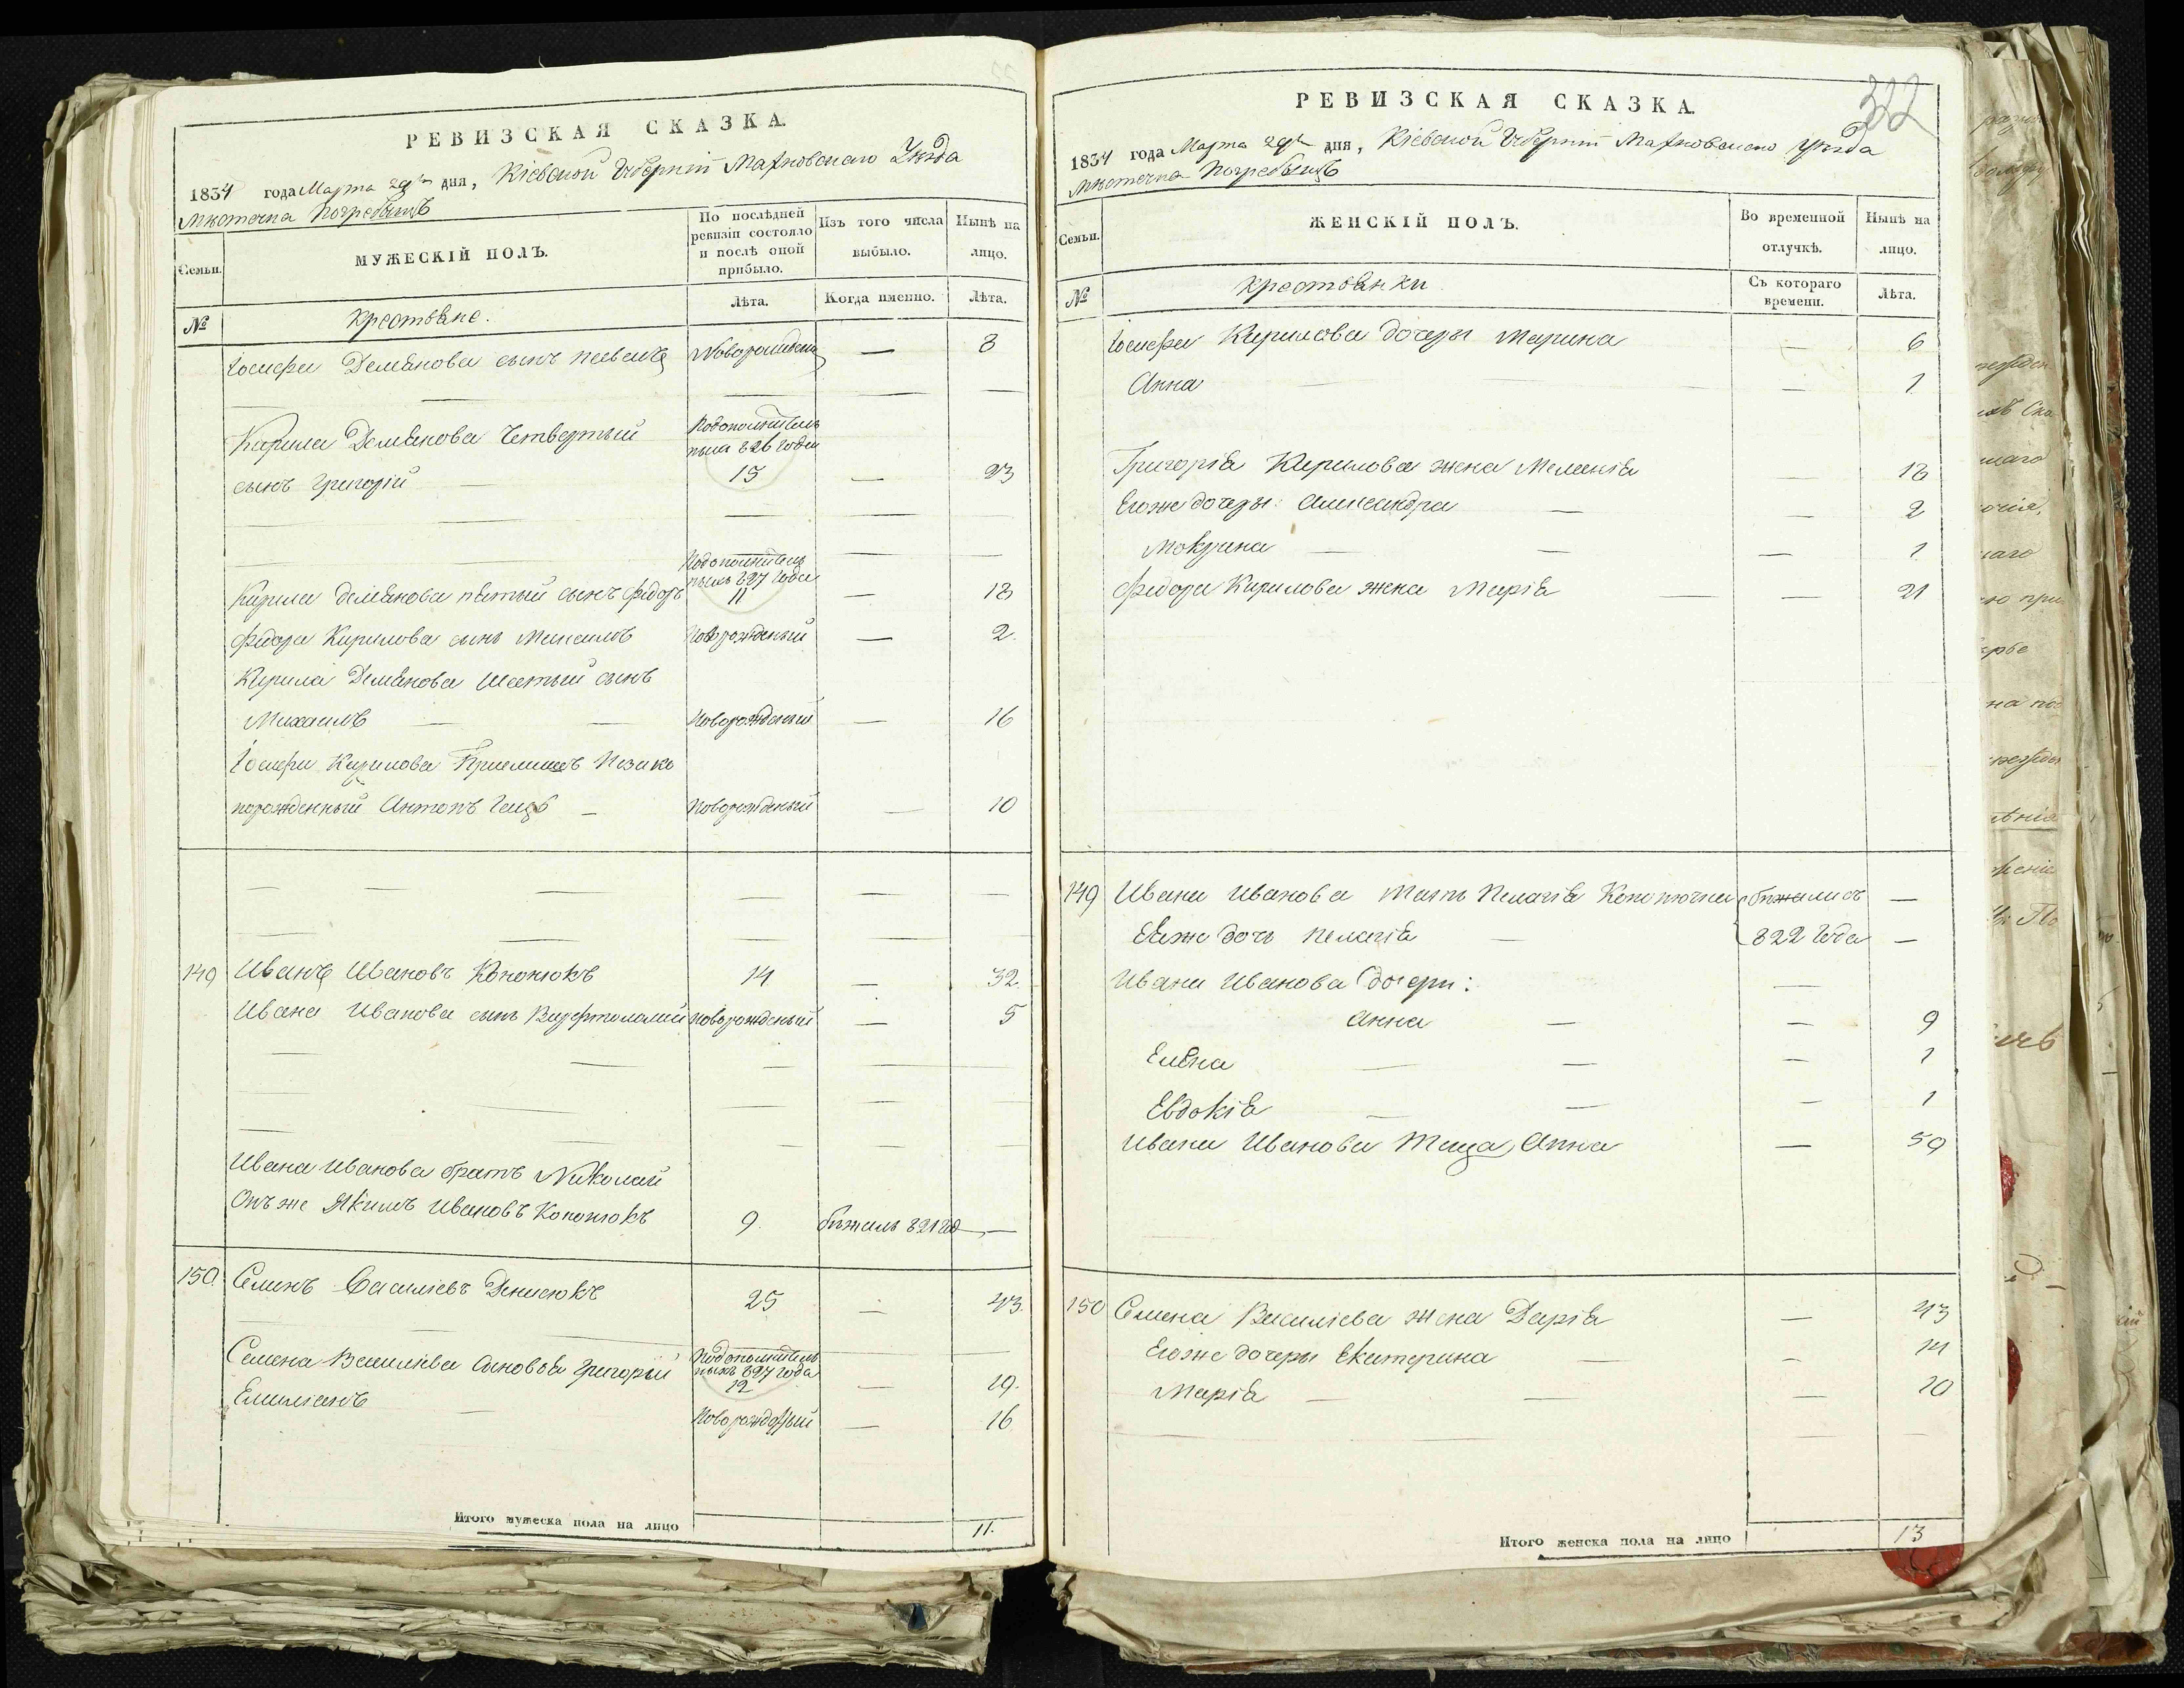 РЕВИЗСКАЯ СКАЗКА.
1834 года Марта 29го дня, Кіевской Губерніи Махновскаго Уѣзда
Мѣстечка Погребищъ
Семьи.
МУЖЕСКІЙ ПОЛЪ.
По послѣдней ревизіи состояло и послѣ оной прибыло.
Изъ того числа выбыло.
Нынѣ на лицо.
№
Крестьяне.
Лѣта.
Когда именно.
Лѣта.
Іосифа Демянова сынъ Павелъ Новорожденъ — 8
Кирила Демянова Четвертый
Подополнитель
ныя 826 года
сынъ Григорій — 15 — 23
Подополнитель
нымъ 827 года
Кирила Демянова пятый сынъ Фідоръ 11 — 18
Фідора Кирилова сынъ Михаилъ Новорожденый — 2.
Кирила Демянова Шестый сынъ
Михаилъ — — Новорожденый — 16
Іосифа Кирилова Приемышъ
порожденный Антонъ — Новорожденый — 10
149 Иванъ Ивановъ Кононюкъ 14 — 32.
Ивана Иванова сынъ Варфтоломій новорожденый — 5
Ивана Иванова братъ Николай
Онъ же Якимъ Ивановъ Кононюкъ 9. бѣжалъ 821 год —
150. Семенъ Василіевъ Денисюкъ 25 — 43.
Подополнитель
нымъ 827 года
Семена Василіева Сыновья Григорій 12 — 19.
Емиліанъ — Новорожденый — 16
Итого мужеска пола на лицо 11.
322
РЕВИЗСКАЯ СКАЗКА.
1834 года Марта 29го дня, Кіевской Губерніи Махновскаго Уѣзда
Мѣстечка Погребищъ
Семьи.
ЖЕНСКІЙ ПОЛЪ.
Во временной отлучкѣ.
Нынѣ на лицо.
№
Крестьянки
Съ котораго времени.
Лѣта.
Іосифа Кирилова дочеры Марина — 6
Анна — — 1
Григорія Кирилова жена Меланія — 18
Егоже дочеры: Александра — — 2
Мокрина — — — 1
Фідора Кирилова жена Марія — — 21
149 Ивана Иванова Мать Пелагія Кононючка бѣжались —
Еяже дочь Пелагія — 822 года —
Ивана Иванова дочери: —
Анна — — 9
Елена — — — 1
Евдокія — — — 1
Ивана Иванова Теща Анна — 50
150 Семена Василіева жена Дарія — 43
Егоже дочеры Екатерина — — 14
Марія — — — 10
Итого женска пола на лицо 13